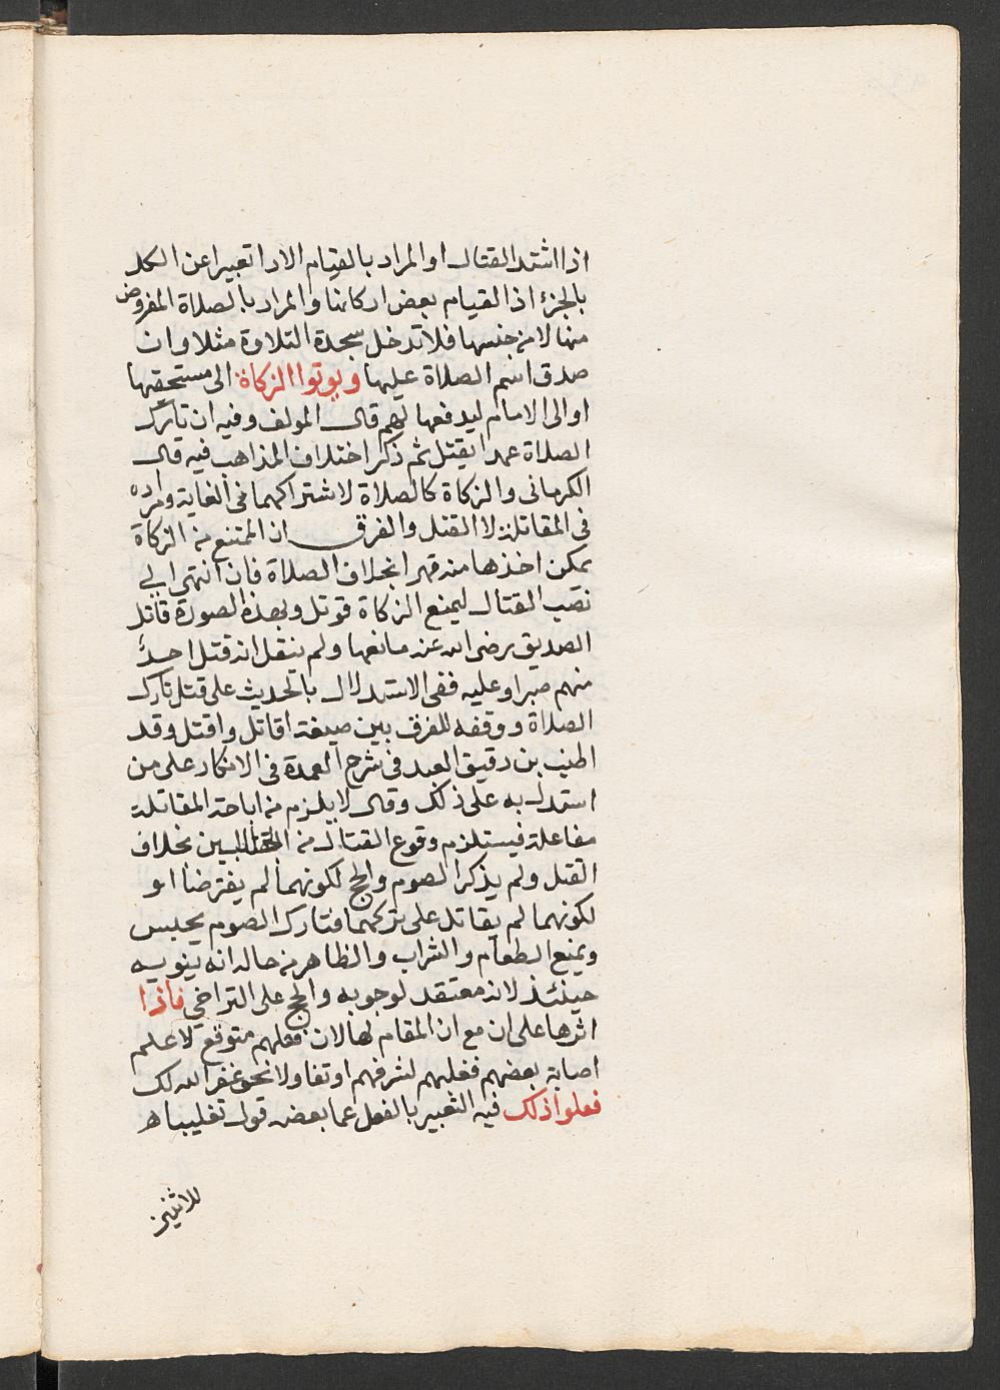 اذا اشتد القتال او المراد بالقيام الاداء تعبيرا عن الكل
بالجزء اذ القيام بعض اركانها والمراد بالصلاة المفروض
منها لا من جنسها فلا تدخل سجدة التلاوة مثلا وان
صدق اسم الصلاة عليها ويوتوا الزكاة الى مستحقيها
او الى الامام ليدفعها لهم قال المولف وفيه ان تارك
الصلاة عمدا يقتل ثم ذكر اختلاف المذاهب فيه قال
الكرماني والزكاة كالصلاة لاشتراكهما في الغاية ومراده
في المقاتلة لا القتل والفرق ان الممتنع من الزكاة
يمكن اخذها منه قهرا بخلاف الصلاة فان انتهى الي
نصب القتال ليمنع الزكاة قوتل وبهذه الصورة قاتل
الصديق رضي الله عنه مانعها ولم ينقل انه قتل احدا
منهم صبرا وعليه ففي الاستدلال بالحديث على قتل تارك
الصلاة ووقفه للفرق بين صيغة اقاتل واقتل وقد
اطنب بن دقيق العيد في شرح العمدة في الانكار على من
استدل به على ذلك وقال لا يلزم من اباحة المقاتلة
مفاعلة فيستلزم وقوع القتال من الجانبين بخلاف
القتل ولم يذكر الصوم والحج لكونهما لم يفترضا او
لكونهما لم يقاتل على تركهما فتارك الصوم يحبس
ويمنع الطعام والشراب والظاهر من حاله انه ينويه
حينئذ لانه معتقد لوجوبه والحج على التراخي فاذا
اثرها على ان مع ان المقام لها لان فعلهم متوقع لاعلم
اصابة بعضهم فغلبهم لشرفهم او تفاولا نحو غفر الله لك
فعلوا ذلك فيه التعبير بالفعل عما بعضه قول تغليبا
للاثنين